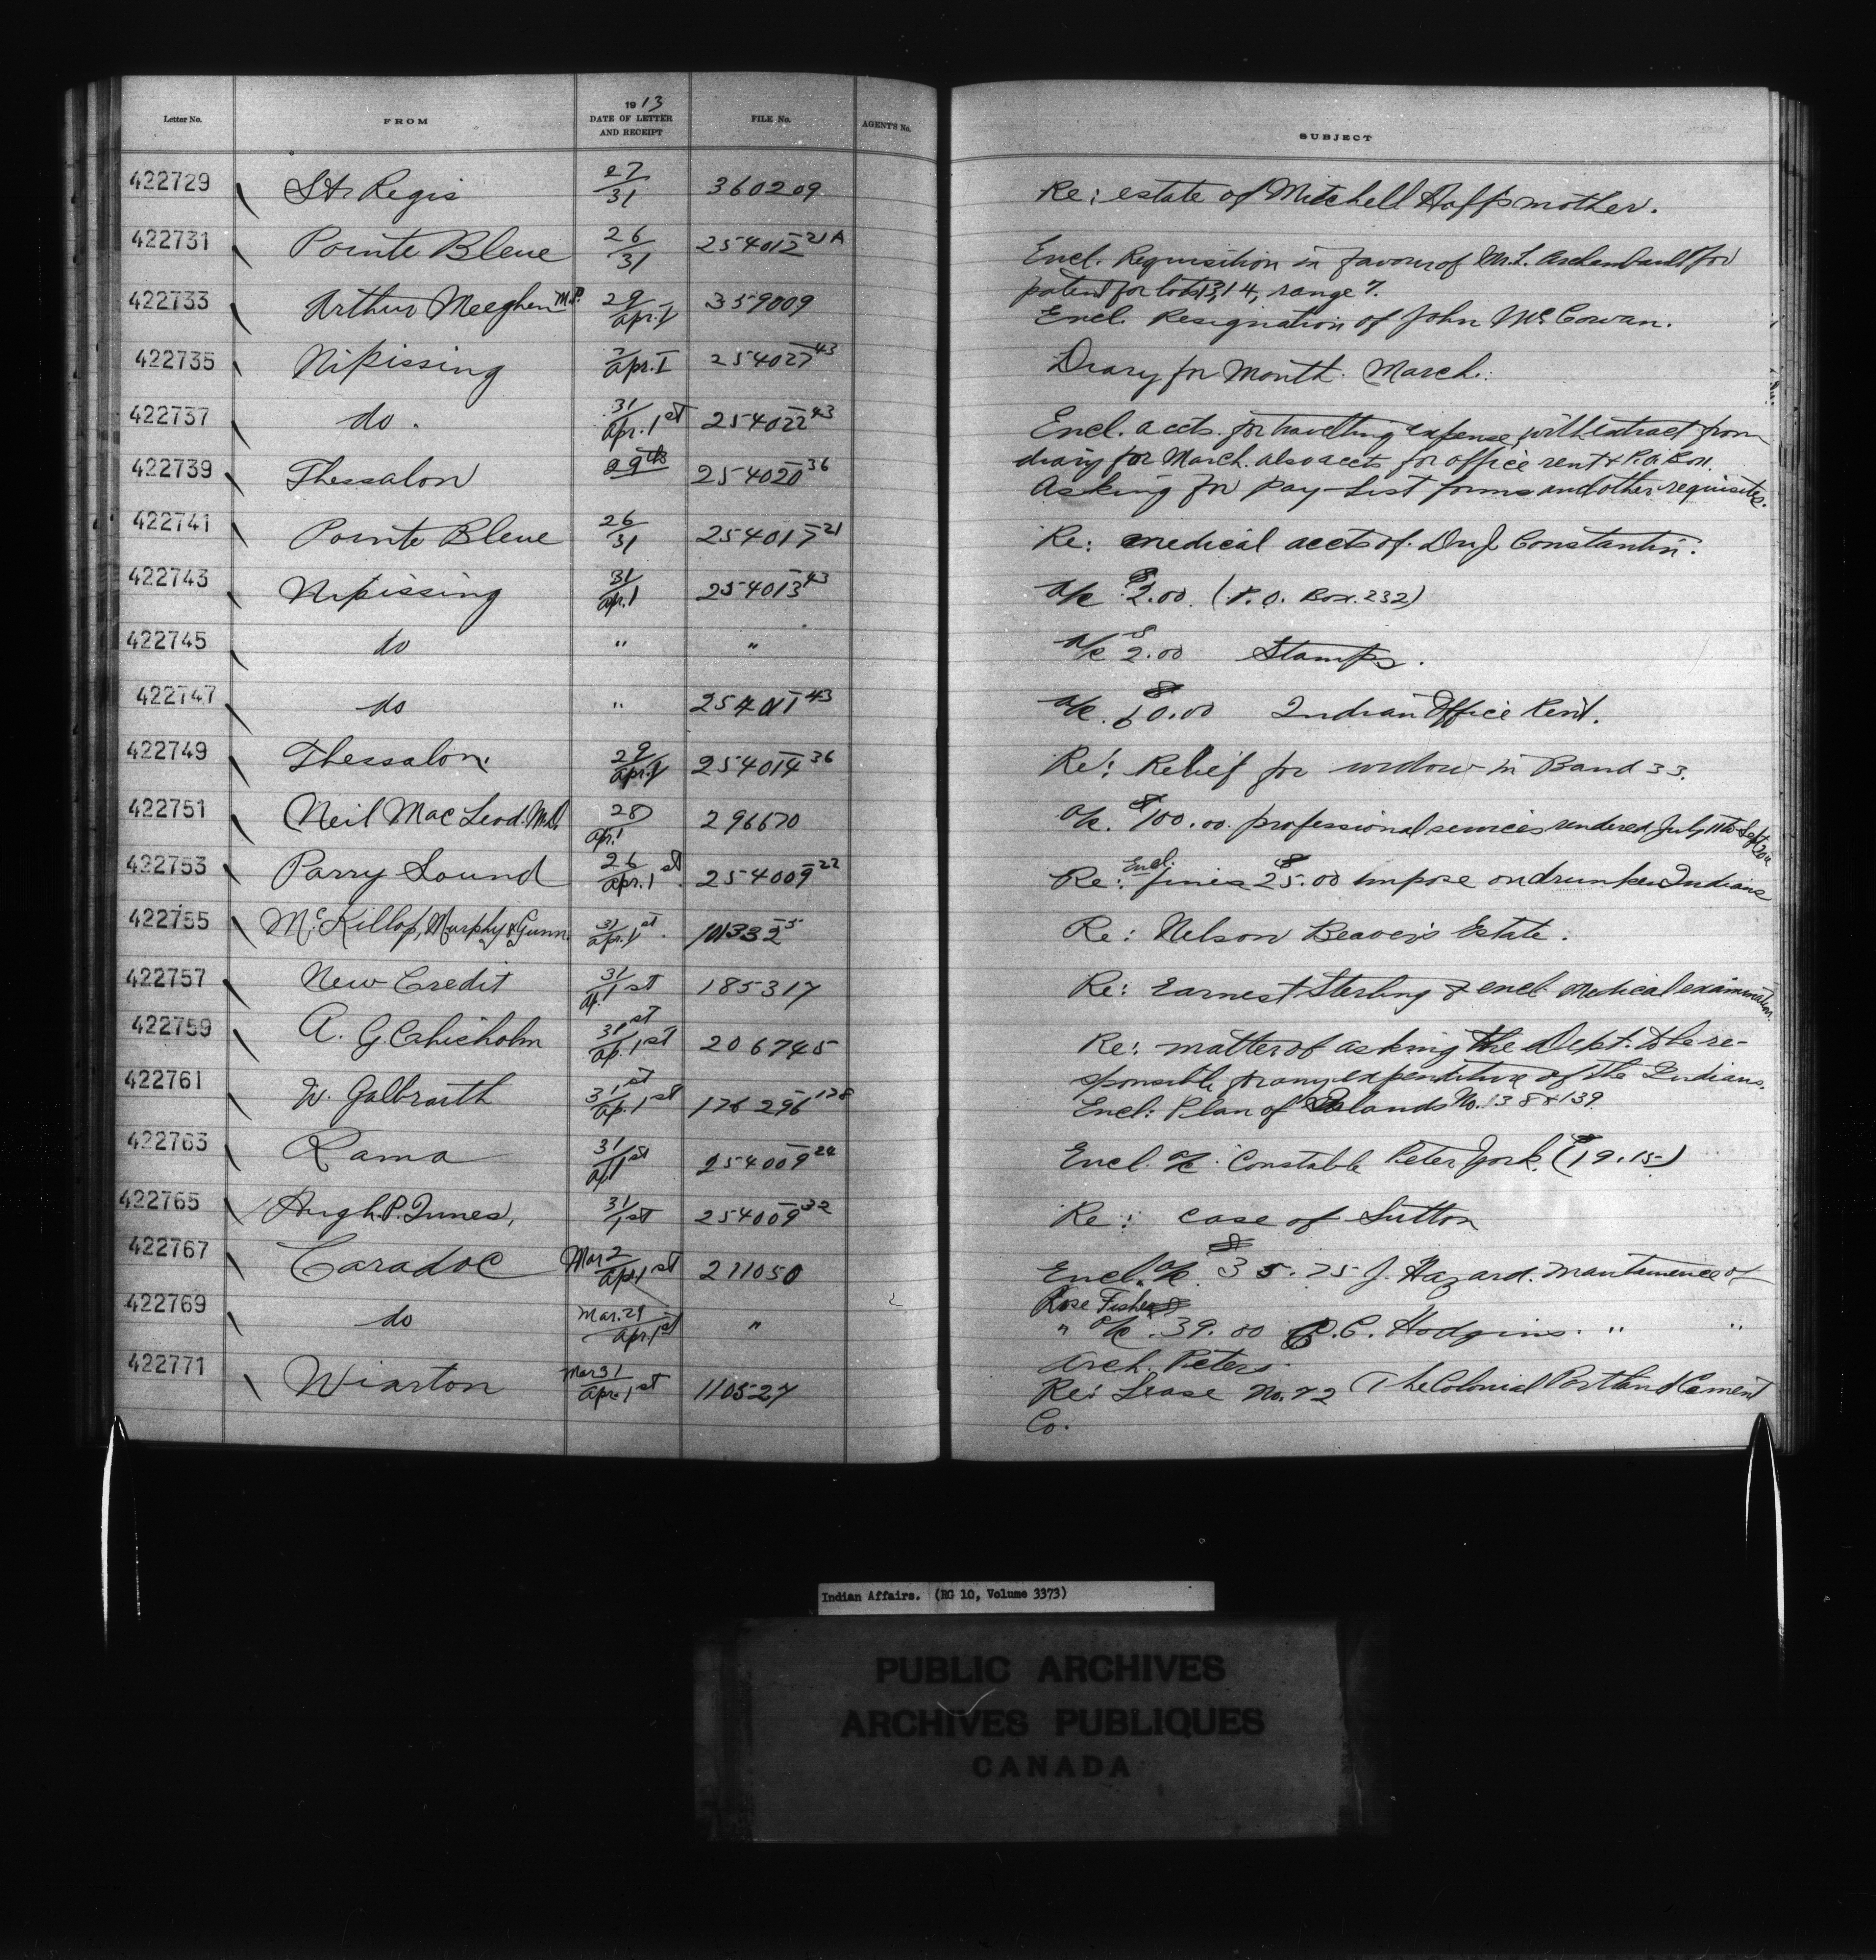 Letter No. FROM 1913 DATE OF LETTER AND RECEIPT FILE No. AGENT'S No. SUBJECT
422729 St. Regis 27/31 360209 Re: estate of Mitchell mother.
422731 Pointe Bleue 26/31 254012 21A Encl. Requisition in favour of M.L. Archambault for
patent for lots 13, 14, range 7.
422733 Arthur Meeghen M.P. 29/Apr. 1 359009 Encl. Resignation of John McCowan.
422735 Nipissing Apr. 1 254027 43 Diary for Month March.
422737 do. 31/Apr. 1st 254022 43 Encl. accts. for travelling expense with extract from
diary for March. also accts for office rent & P.O. Box.
422739 Thessalon 29th 254020 36 Asking for Pay-List forms and other requisites.
422741 Pointe Bleue 26/31 254017 21 Re: medical accts of Dr. J. Constantin.
422743 Nipissing 31/Apr. 1 254013 43 a/c $2.00 (P.O. Box. 232)
422745 do " " a/c $2.00 Stamps.
422747 do " 254011 43 a/c. $60.00 Indian Office Rent.
422749 Thessalon. 29/Apr. 1 254014 36 Re: Relief for widow in Band 33.
422751 Neil MacLeod. M.D. 28/Apr. 1 296670 a/c. $100.00. professional services rendered July 11 to Sept 20th
422753 Parry Sound 26/Apr. 1st 254009 22 Re: Encl. fines $25.00 impose on drunken Indians
422755 McKillop, Murphy & Gunn. 31/Apr. 1st. 101332 5 Re: Nelson Beaver's Estate.
422757 New Credit 31/Ap. 1st 185317 Re: Earnest Sterling & encl. Medical examination.
422759 A. G. Chisholm 31st/Ap. 1st 206745 Re: matter of asking the Dept. to be re-
sponsible for any expenditure of the Indians.
422761 W. Galbraith 31st/Ap. 1st 176296 128 Encl: Plan of Islands No. 138 & 139
422763 Rama 31/Ap 1st 254009 24 Encl. a/c. Constable Peter York. ($19.15)
422765 Hugh. P. Innes, 31/1st 254009 32 Re: case of Sutton
422767 Caradoc Mar 2/Apr 1st 211050 Encl. a/c. $35.75 J. Hazard. maintainence of
Rose Fisher
422769 do Mar. 29/Apr. 1st " " a/c $39.00 C. Hodgins. " "
Arch. Peters.
422771 Wiarton Mar 31/Apr. 1st 110527 Re: Lease No. 72 The Colonial Portland Cement
Co.
Indian Affairs. (RG 10, Volume 3373)
PUBLIC ARCHIVES
ARCHIVES PUBLIQUES
CANADA